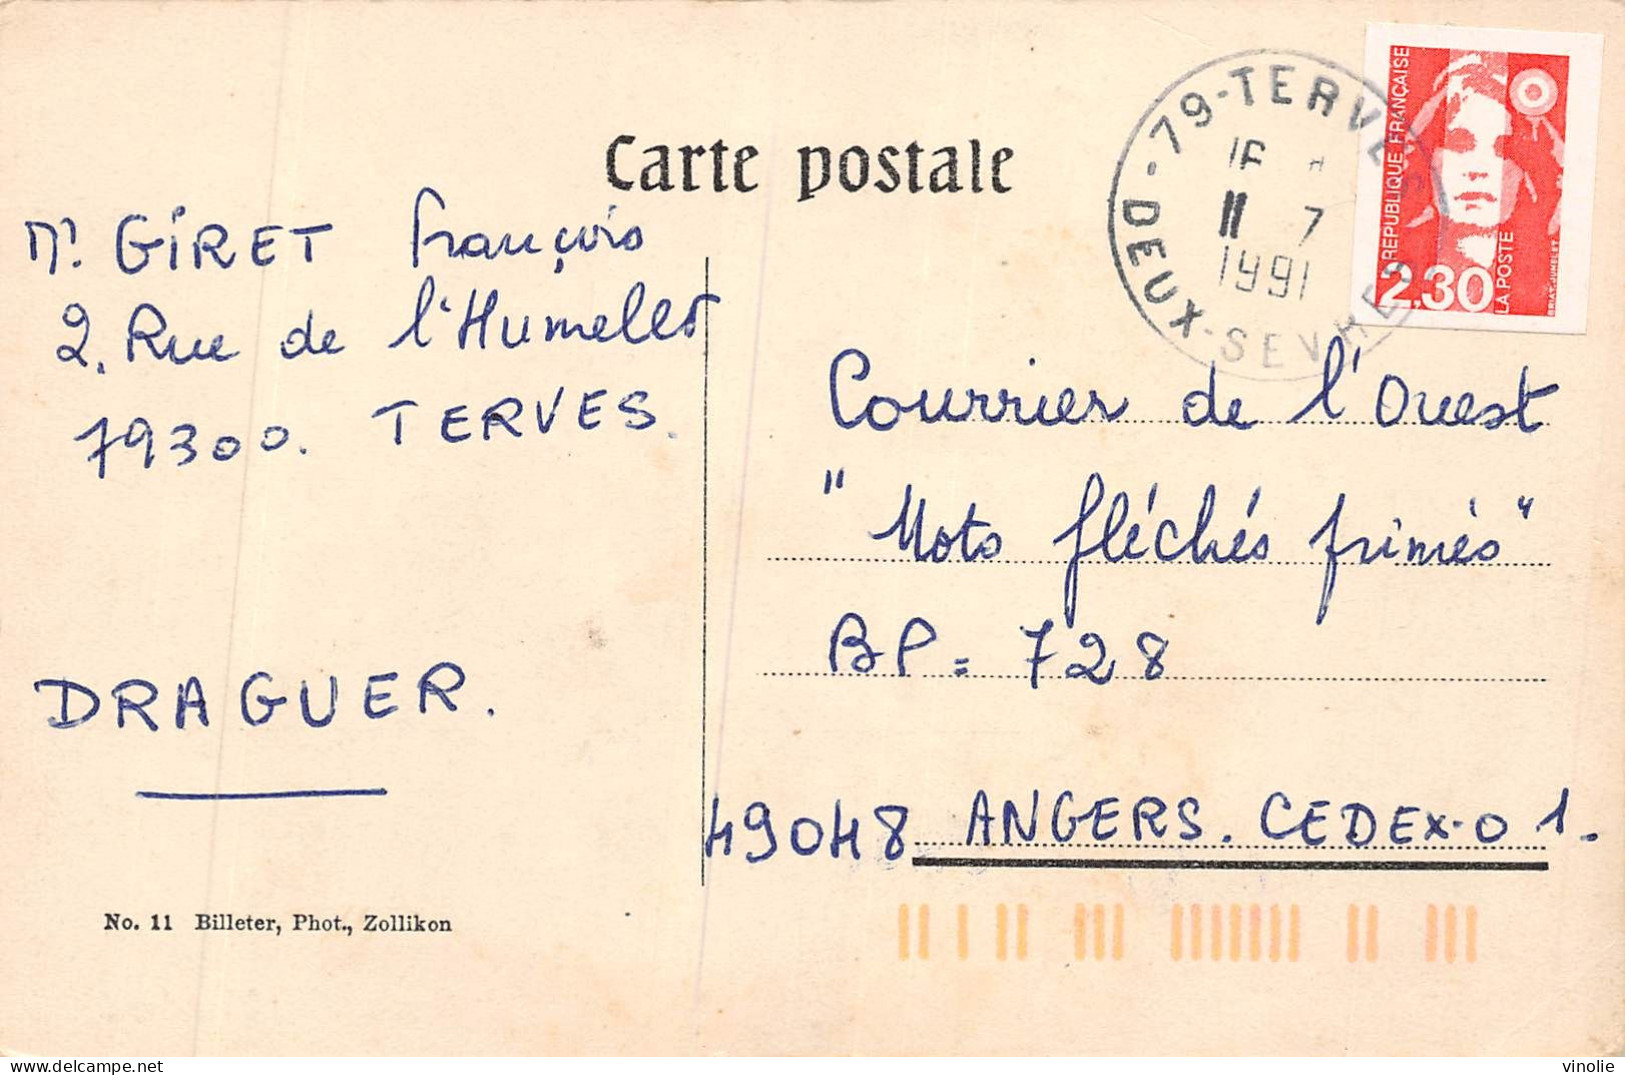 Carte postale
79-TERVES
11 7
1991
DEUX-SEVRES
REPUBLIQUE FRANÇAISE
2,30
LA POSTE
BRIAT-JUMELET
Mr. GIRET François
2. Rue de l'Humelet
79300. TERVES.
DRAGUER.
Courrier de l'Ouest
"Mots fléchés primés"
BP = 728
49048 ANGERS. CEDEX-01.
No. 11 Billeter, Phot., Zollikon
vinolie